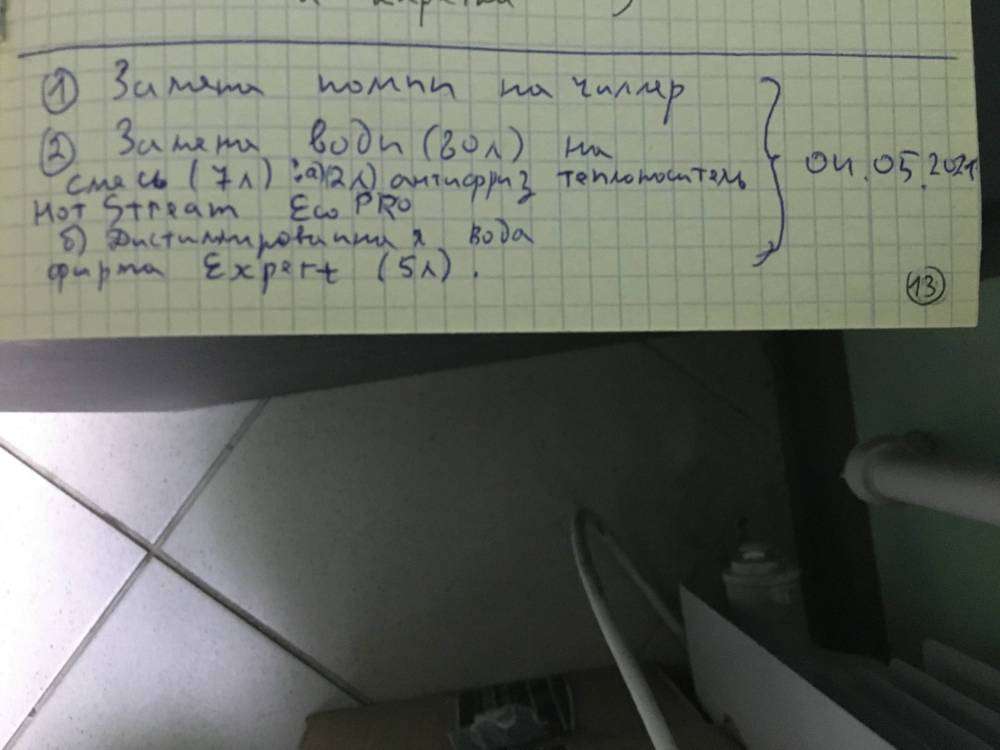 ① Замена помпы на чиллер
② Замена воды (30л) на
смесь (7л) : а) (2л) антифриз теплоноситель
Hot Stream Eco PRO
б) Дистиллированная вода
фирма Expert (5л).
04.05.2021
⑬